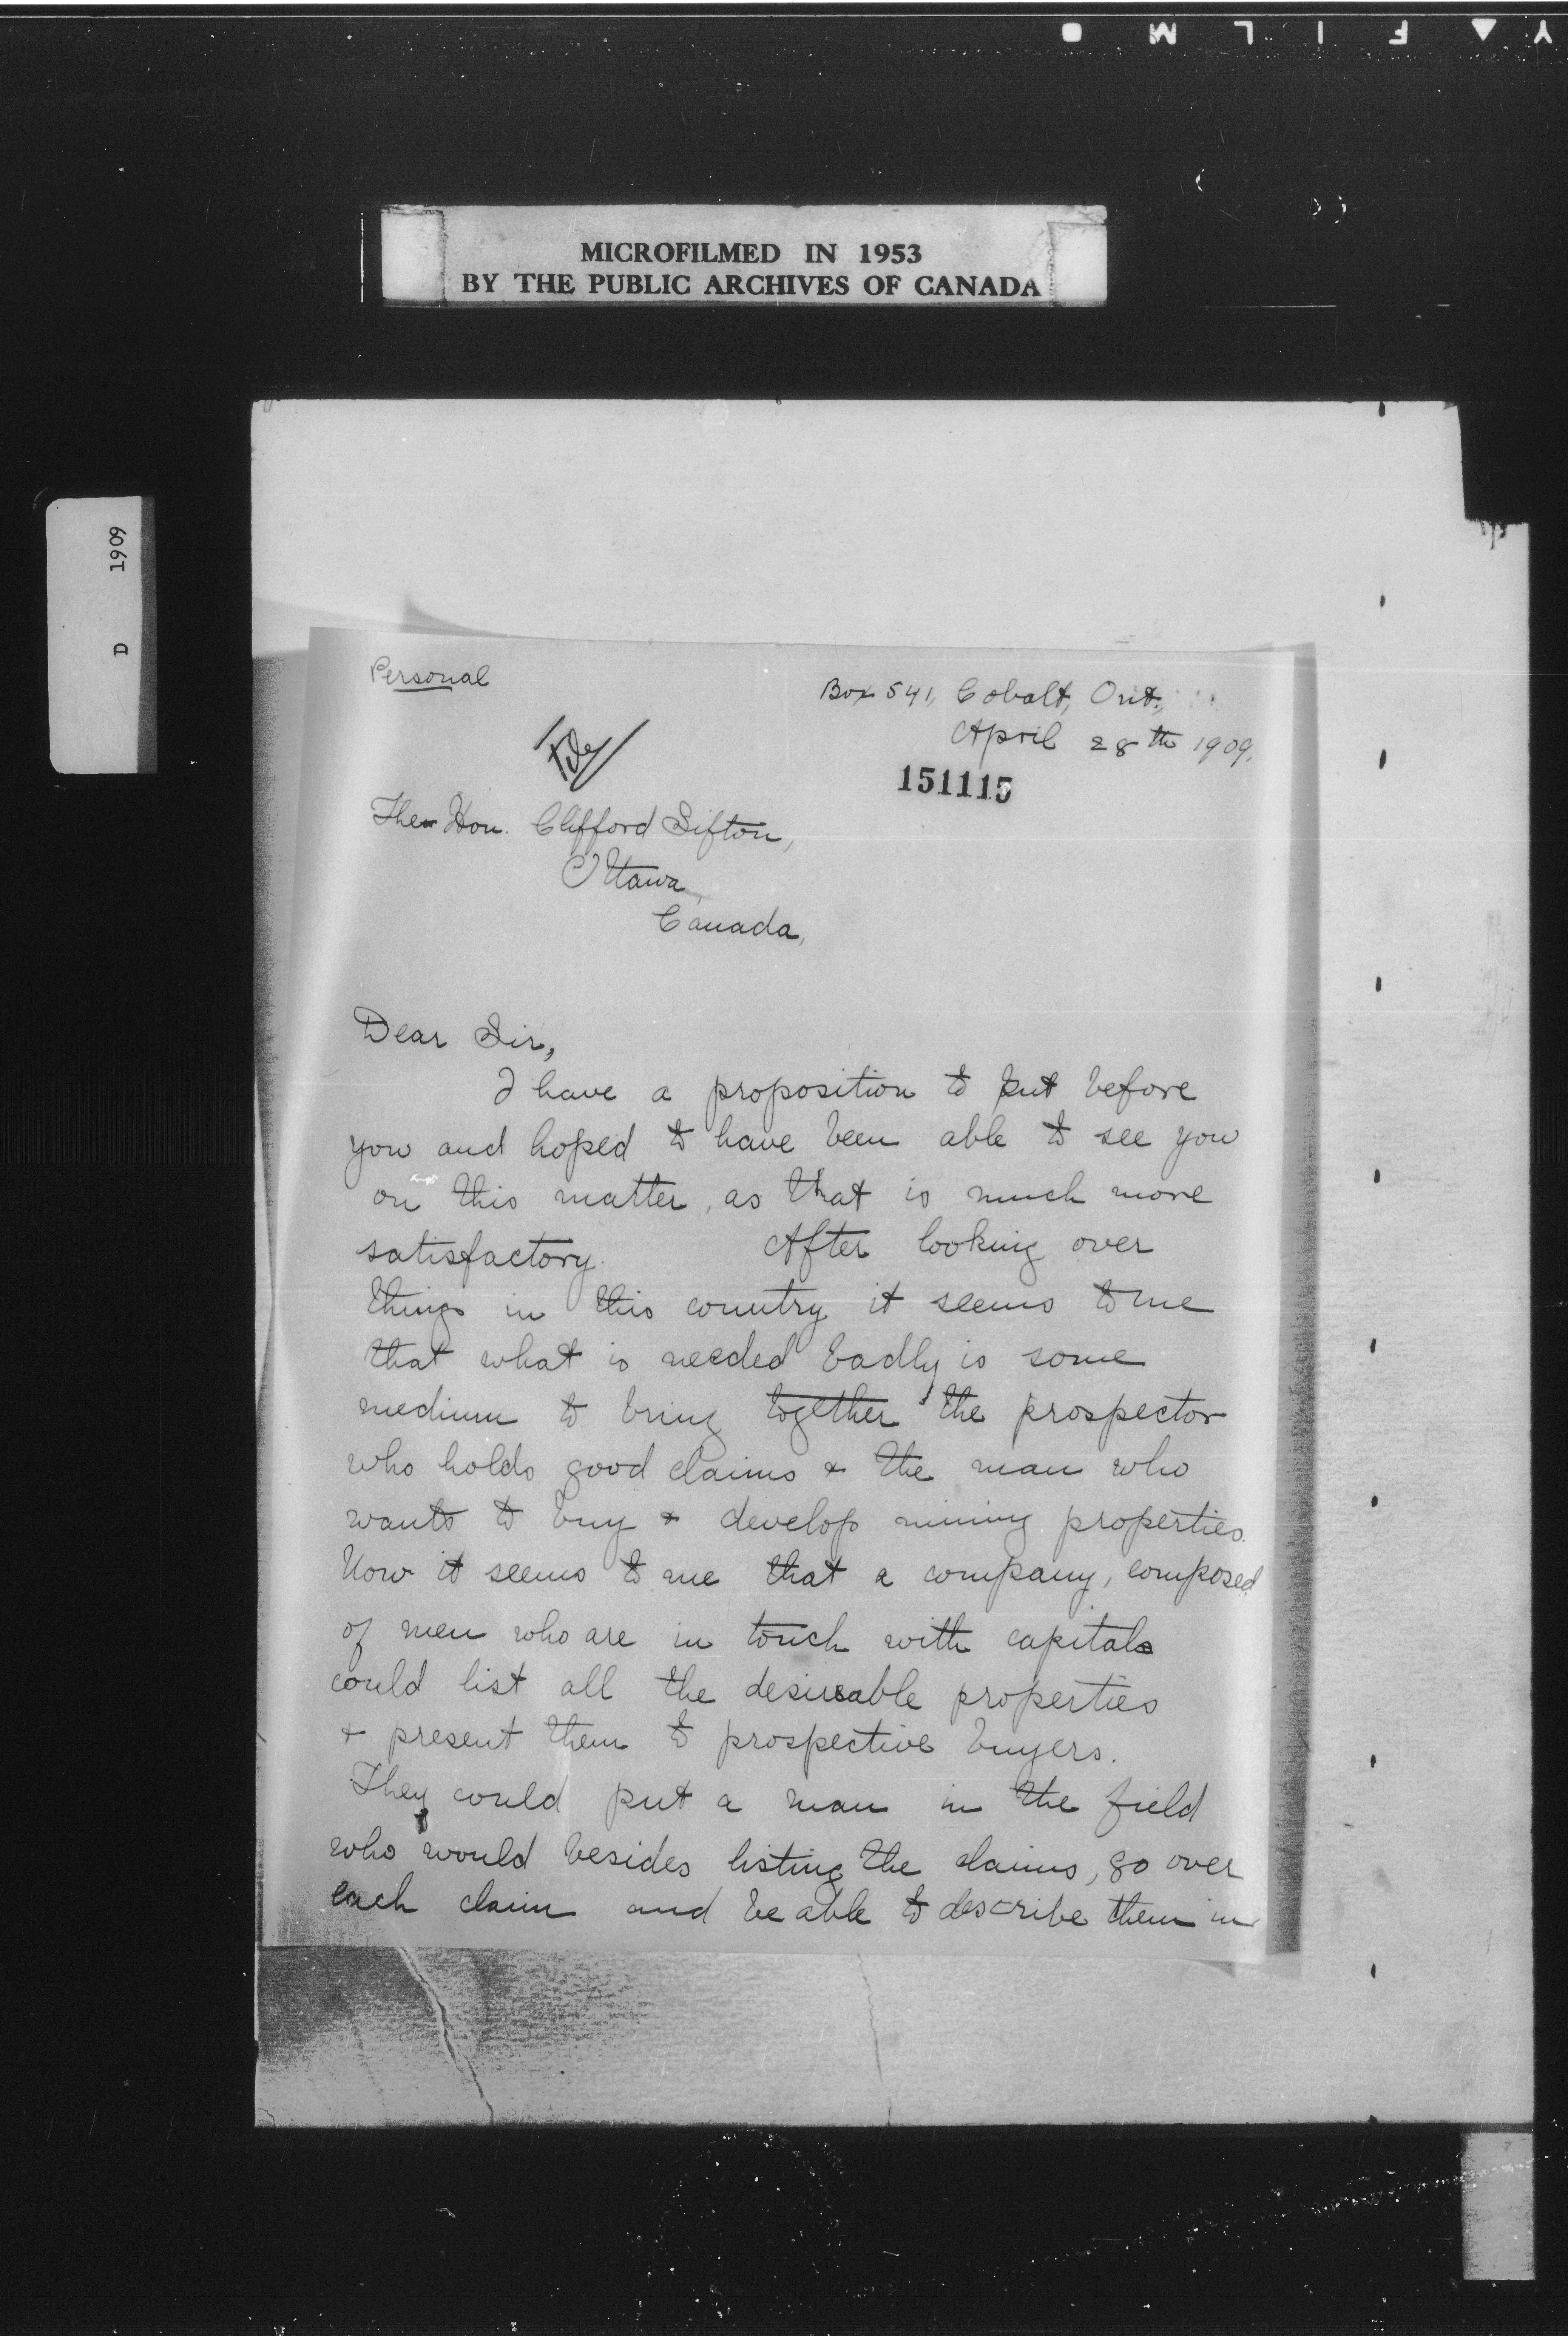 Y ▲ F I L M
MICROFILMED IN 1953
BY THE PUBLIC ARCHIVES OF CANADA
D 1909
Personal
Box 541, Cobalt, Ont.,
April 28th 1909.
151115
The Hon. Clifford Sifton,
Ottawa,
Canada,
Dear Sir,
I have a proposition to put before
you and hoped to have been able to see you
on this matter, as that is much more
satisfactory. After looking over
things in this country it seems to me
that what is needed badly is some
medium to bring together the prospector
who holds good claims & the man who
wants to buy & develop mining properties.
Now it seems to me that a company, composed
of men who are in touch with capital
could list all the desireable properties
& present them to prospective buyers.
They could put a man in the field
who would besides listing the claims, go over
each claim and be able to describe them in